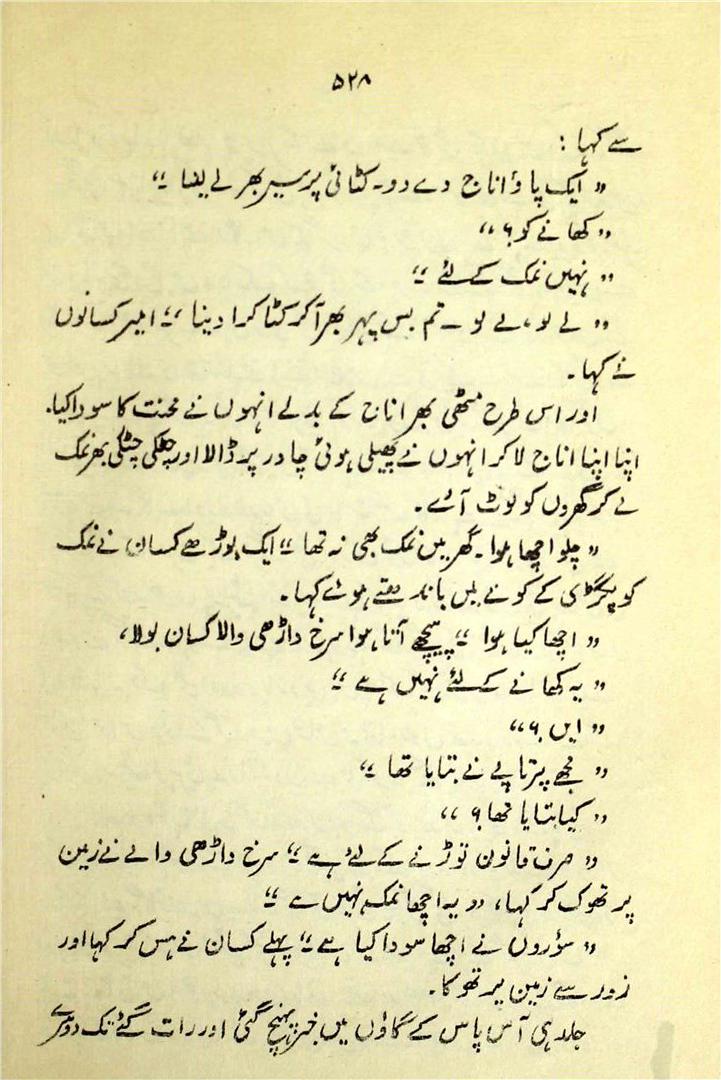 ۵۲۸
سے کہا :
” ایک پاؤ اناج دے دو۔ کٹائی پر سیر بھر لے لینا ۔“
” کھانے کو ؟ “
” نہیں نمک کے لئے ۔“
” لے لو، لے لو ۔ تم بس پہر بھر آ کر کٹا کرا دینا ،“ امیر کسانوں
نے کہا ۔
اور اس طرح مٹھی بھر اناج کے بدلے انہوں نے محنت کا سودا کیا۔
اپنا اپنا اناج لا کر انہوں نے پھیلی ہوئی چادر پر ڈالا اور چٹکی چٹکی بھر نمک
لے کر گھروں کو لوٹ آئے ۔
” چلو اچھا ہوا ۔ گھر میں نمک بھی نہ تھا ۔“ ایک بوڑھے کسان نے نمک
کو پگڑی کے کونے میں باندھتے ہوئے کہا ۔
” اچھا کیا ہوا ۔“ پیچھے آتا ہوا سرخ داڑھی والا کسان بولا،
” یہ کھانے کے لئے نہیں ہے ۔“
” ایں ؟ “
” مجھے پرتاپے نے بتایا تھا ۔“
” کیا بتایا تھا ؟ “
” صرف قانون توڑنے کے لئے ہے ۔“ سرخ داڑھی والے نے زمین
پر تھوک کر کہا، ” یہ اچھا نمک نہیں ہے ۔“
” سؤروں نے اچھا سودا کیا ہے ۔“ پہلے کسان نے ہنس کر کہا اور
زور سے زمین پر تھوکا ۔
جلد ہی آس پاس کے گاؤں میں خبر پہنچ گئی اور رات گئے تک دوسرے